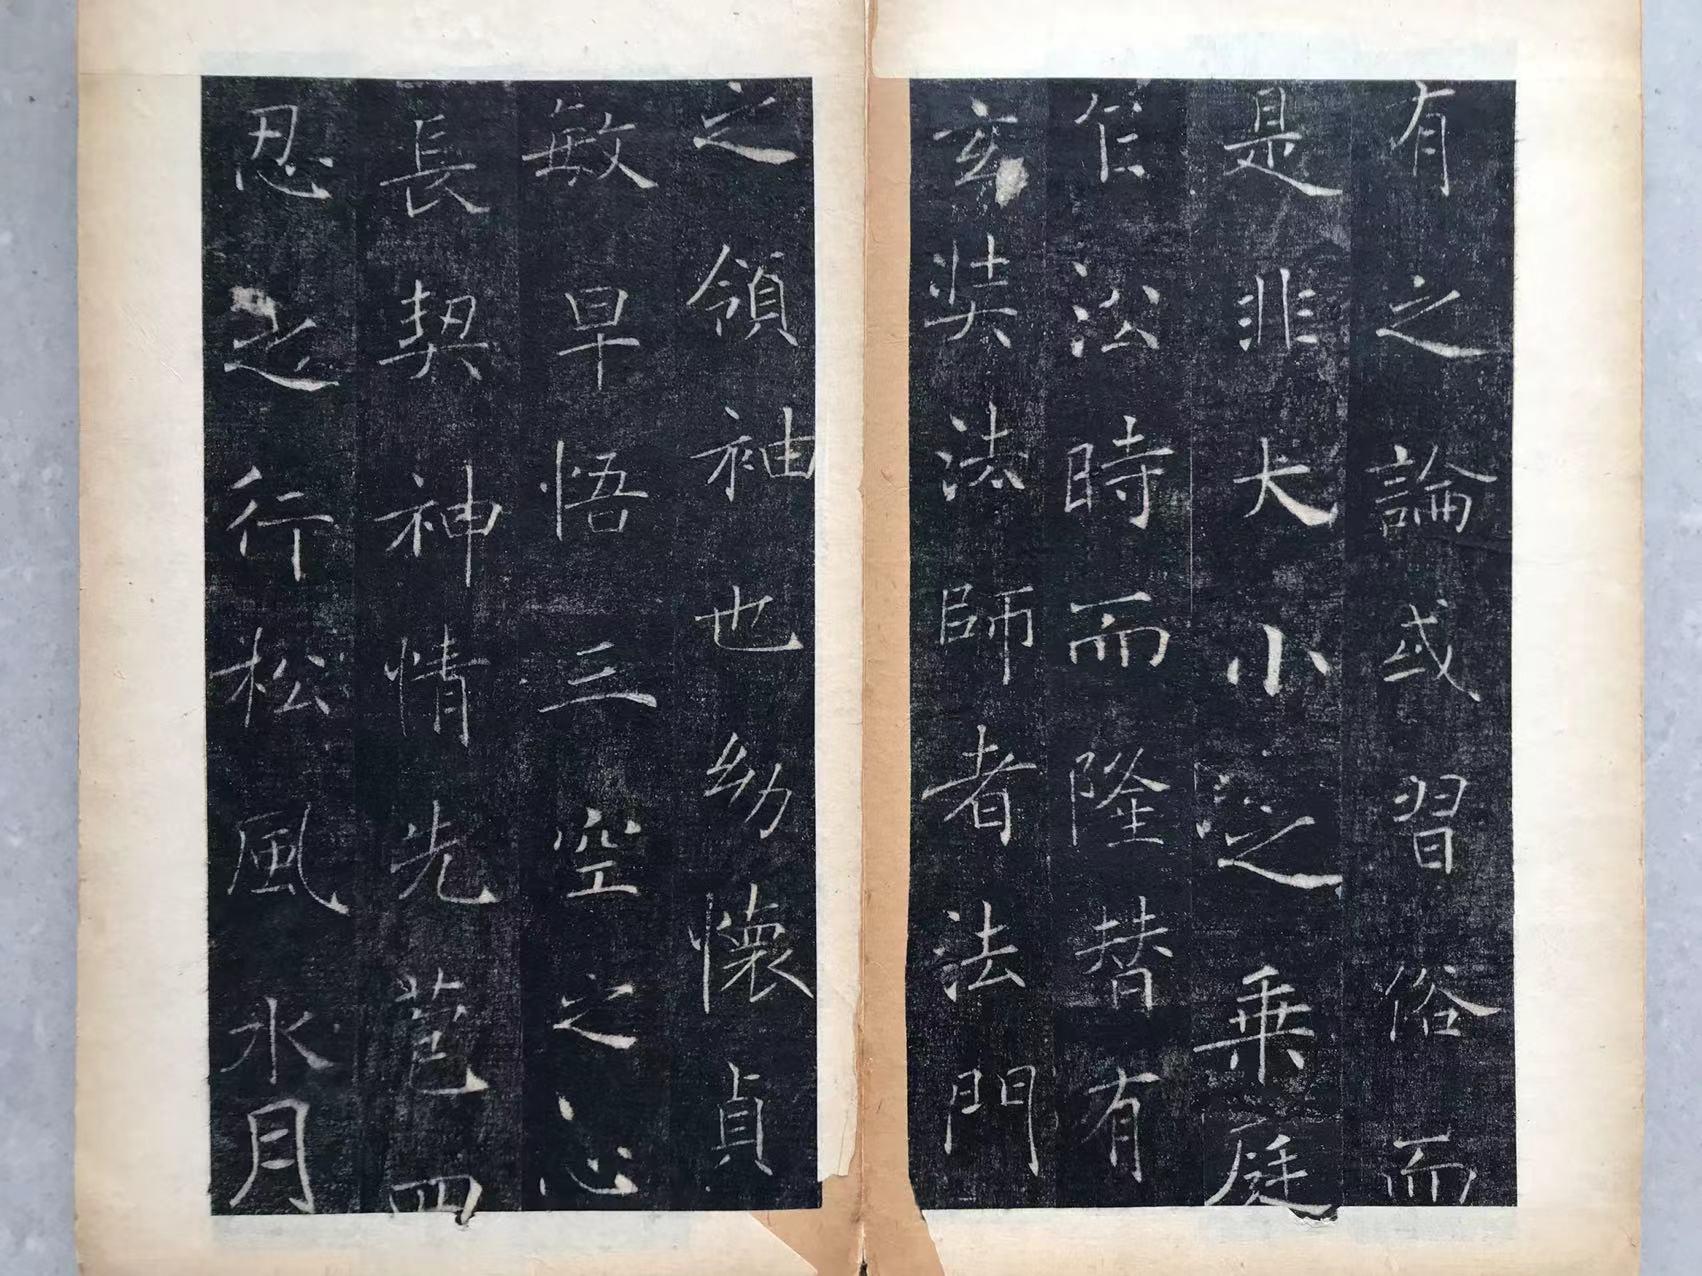 有之論或習俗而
是非大小之乘
乍沿時而隆替有
玄奘法師者法門
之領袖也幼懷貞
敏早悟三空之心
長契神情先苞四
忍之行松風水月